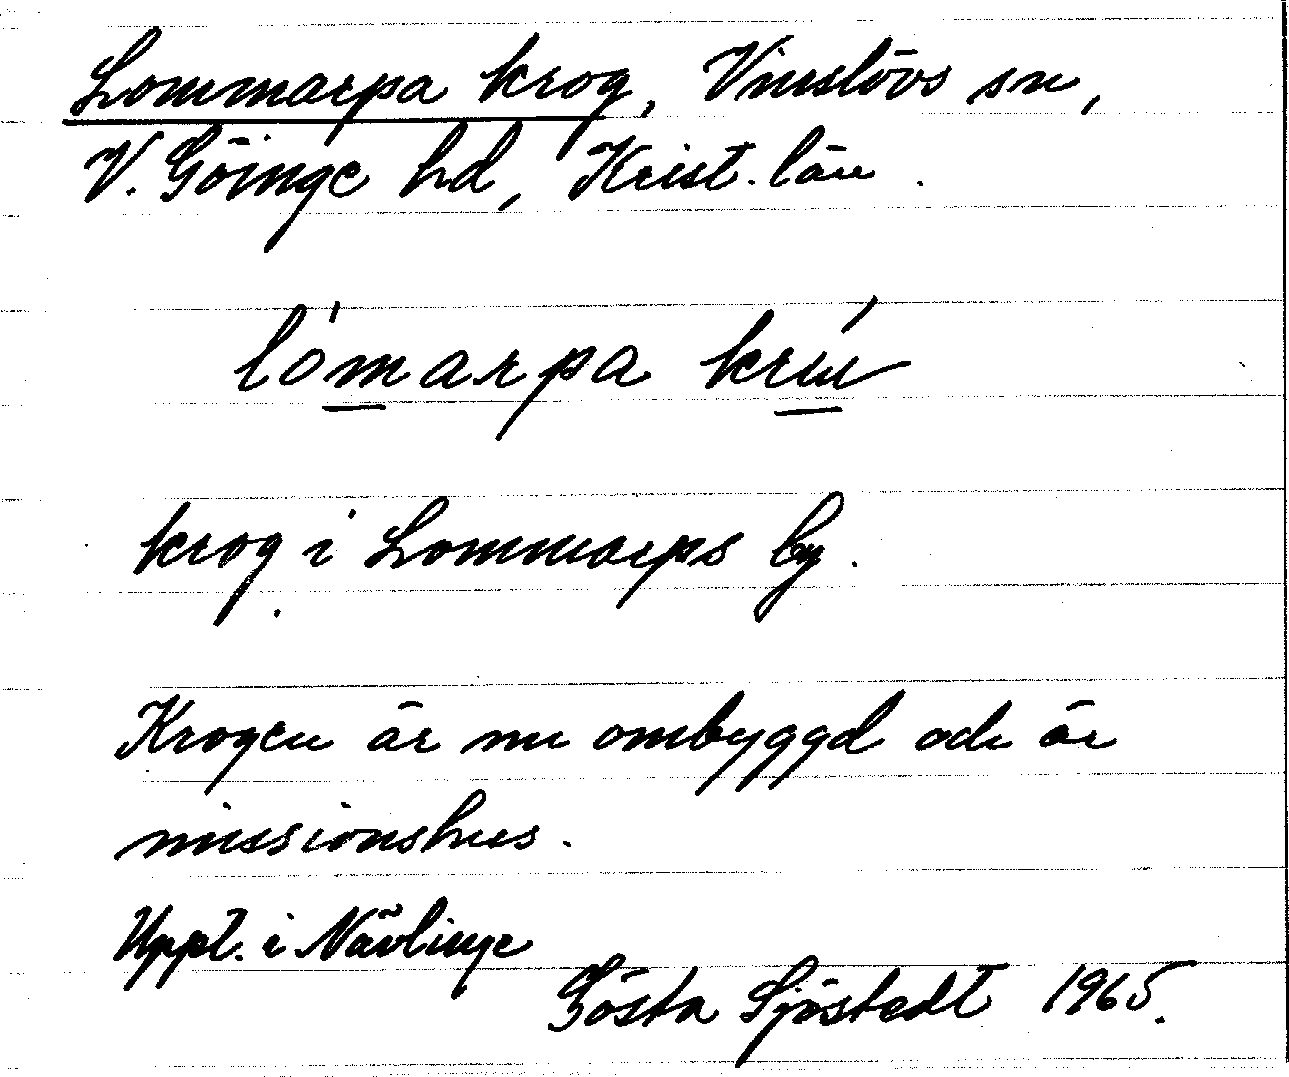 Lommarpa krog, Vinslövs sn,
V. Göinge hd, Krist. län.
lómarpa
krog i Lommarps by.
Krogen är nu ombyggd och är
missionshus.
Uppt. i Nävlinge
Gösta Sjöstedt 1965.